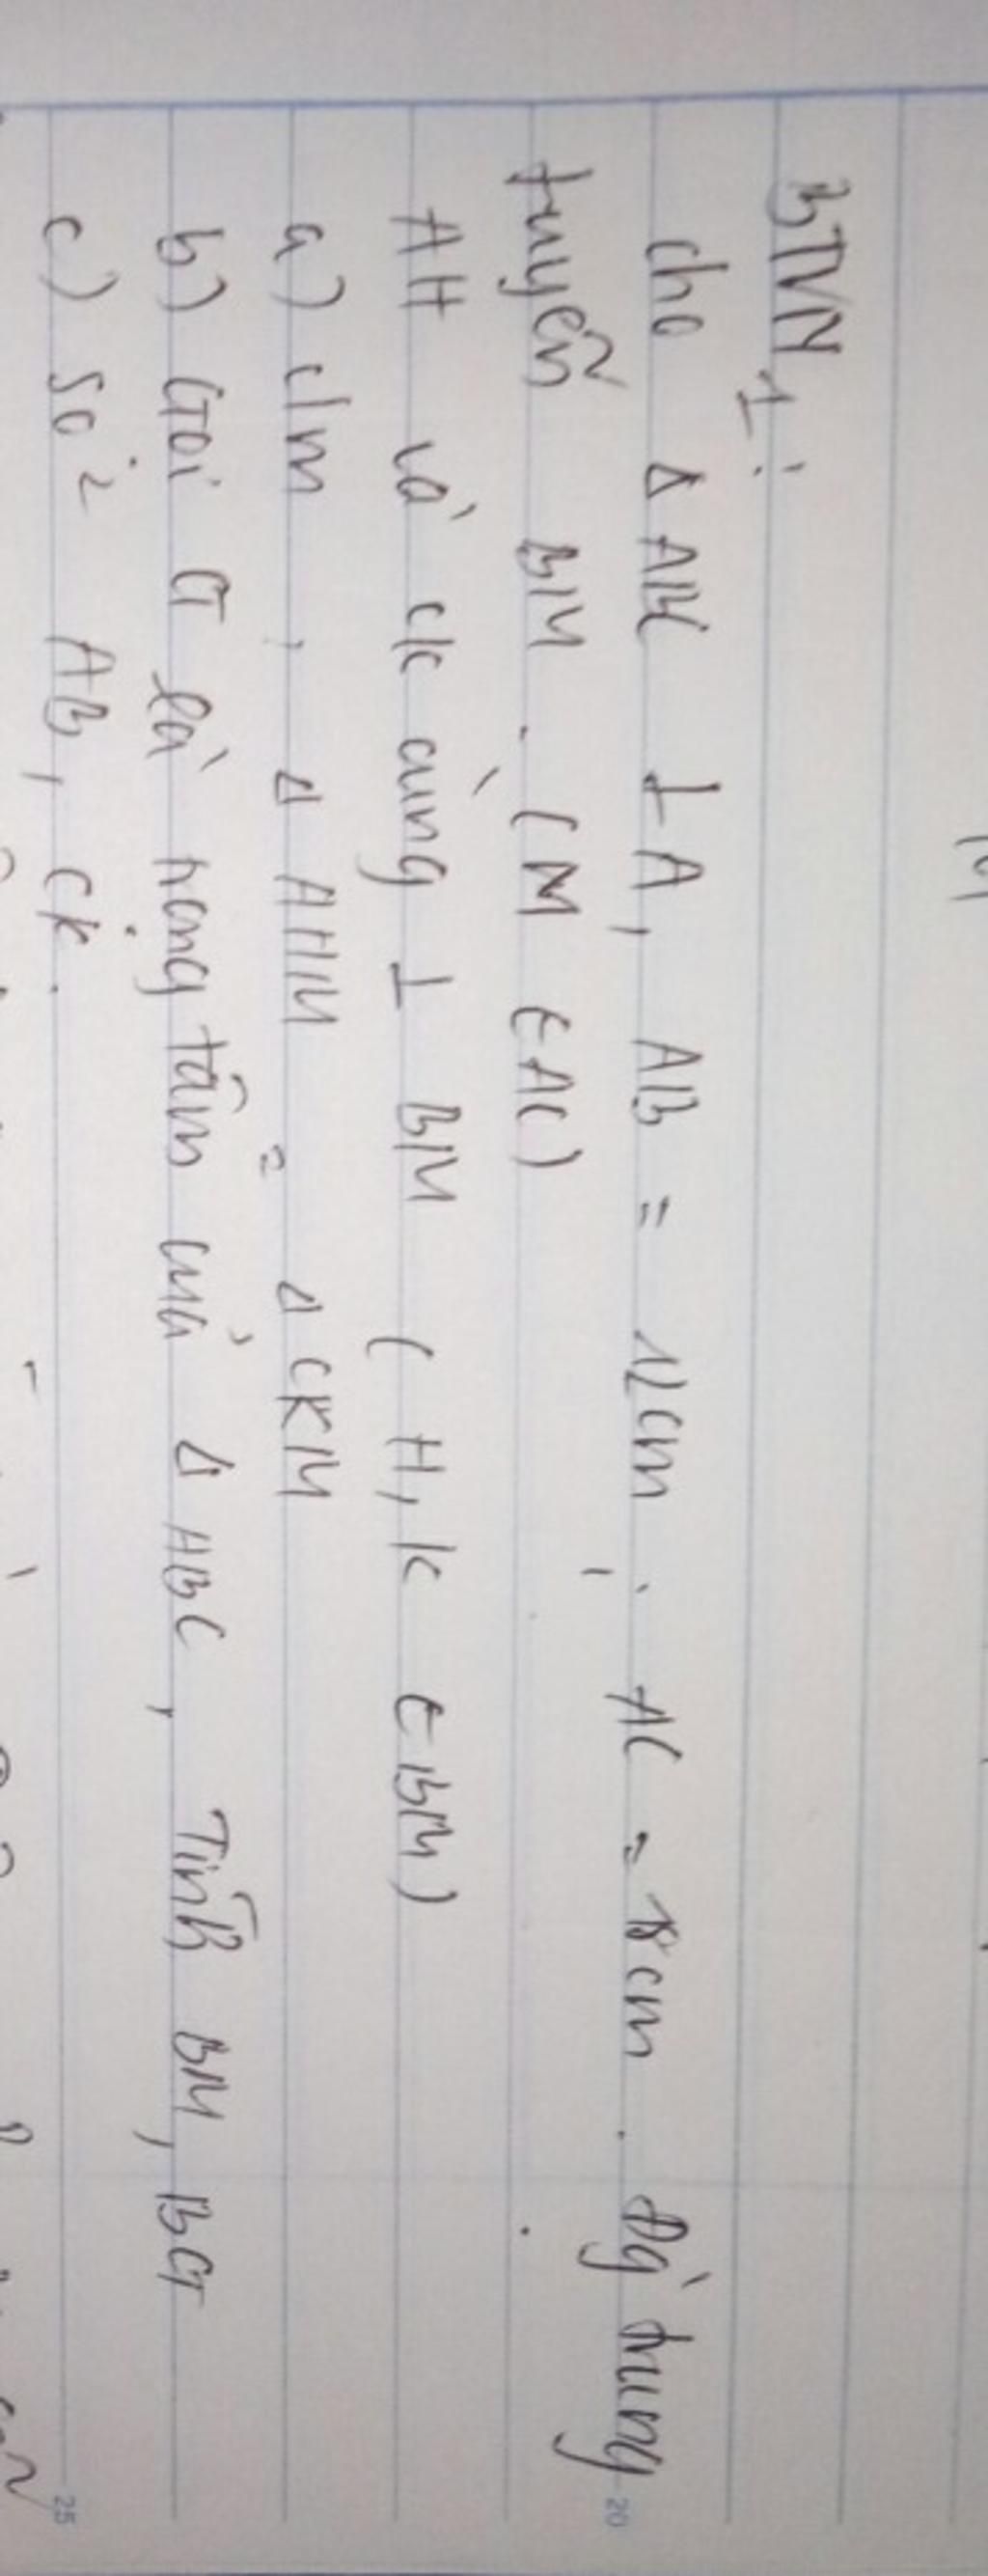 BTVN 1:
cho Δ ABC ⊥ A, AB = 12cm. AC = 18cm. Đg' trung
tuyến BM. (M ∈ AC)
AH và CK cùng ⊥ BM (H, K ∈ BM)
a) c/m, Δ AHM = Δ CKM
b) Gọi G là trọng tâm của Δ ABC, Tính BM, BG
c) so² AB, CK.
20
25